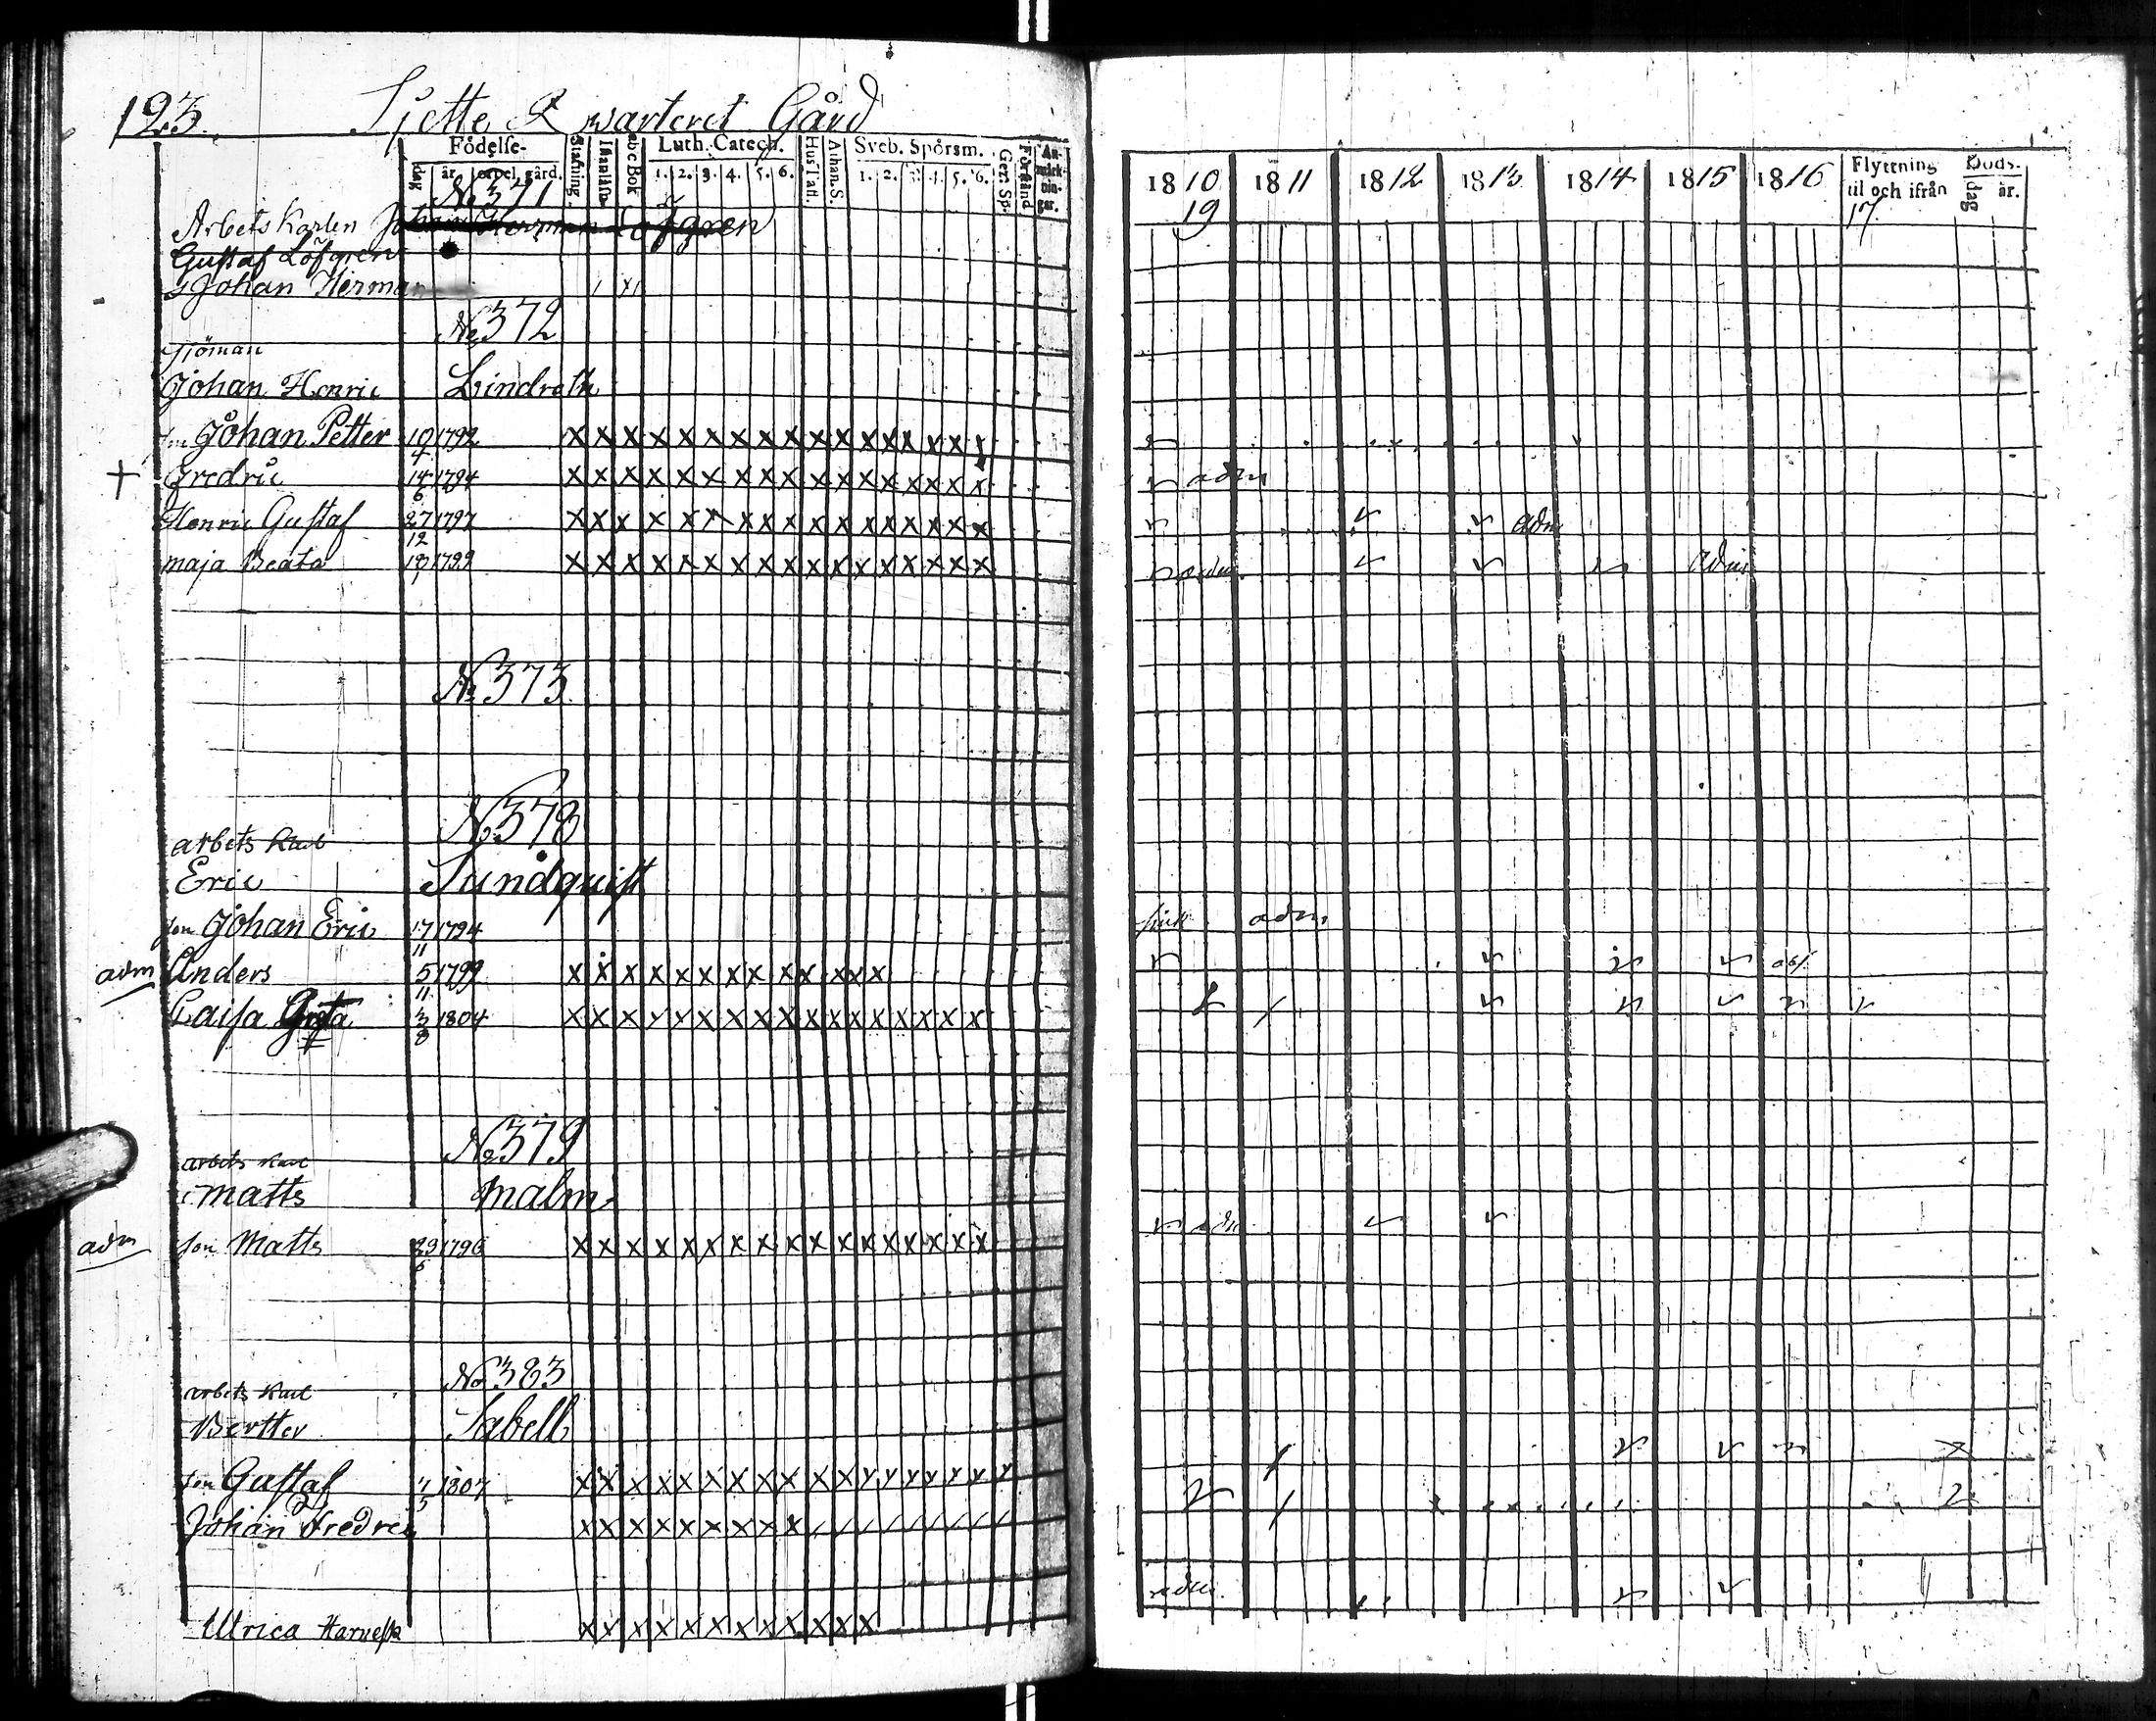 123. Sjette Qwarteret Gård
Födelse- Stafning. Inanläsn. Abc Bok Luth. Catech. Husl att. Athan. S. Sveb. Spörsm. Gert. Sp. Förstånd An-
dag år ort el. gård. 1. 2. 3. 4. 5. 6. 1. 2. 3. 4. 5. 6. märk-
nin-
gar.
1810 1811 1812 1813 1814 1815 1816 Flyttning Döds-
til och ifrån dag år.
19 17
No 371
Arbets Karlen Johan Herman Löfgren
Gustaf Löfgren
S Johan Herman
No 372
Sjöman
Johan Henric Lindroth
Son Johan Petter 19/4 1792 x x x x x x x x x x x x x x x x
+ Fredric 14/6 1794 x x x x x x x x x x x x x x x x adm
Henric Gustaf 27/12 1797 x x x x x x x x x x x x x x x x adm
maja Beata 1799 x x x x x x x x x x x x x x x x adm
No 373
No 378
arbets Karl
Eric Sundquist
Son Johan Eric 17/11 1794 sjuk adm
adm Anders 5/11 1799 x x x x x x x x x x x x x abs
Caisa Greta 3/8 1804 x x x x x x x x x x x x x x x x
No 379
arbets Karl
Matts Malm
adm Son Matts 29/6 1796 x x x x x x x x x x x x x x x x adm
No 383
arbets Karl
Bertter Sabell
Son Gustaf 1807 x x x x x x x x x x x x x x x x x
Johan Fredric x x x x x x x x x
Ulrica x x x x x x x x x x x x adm